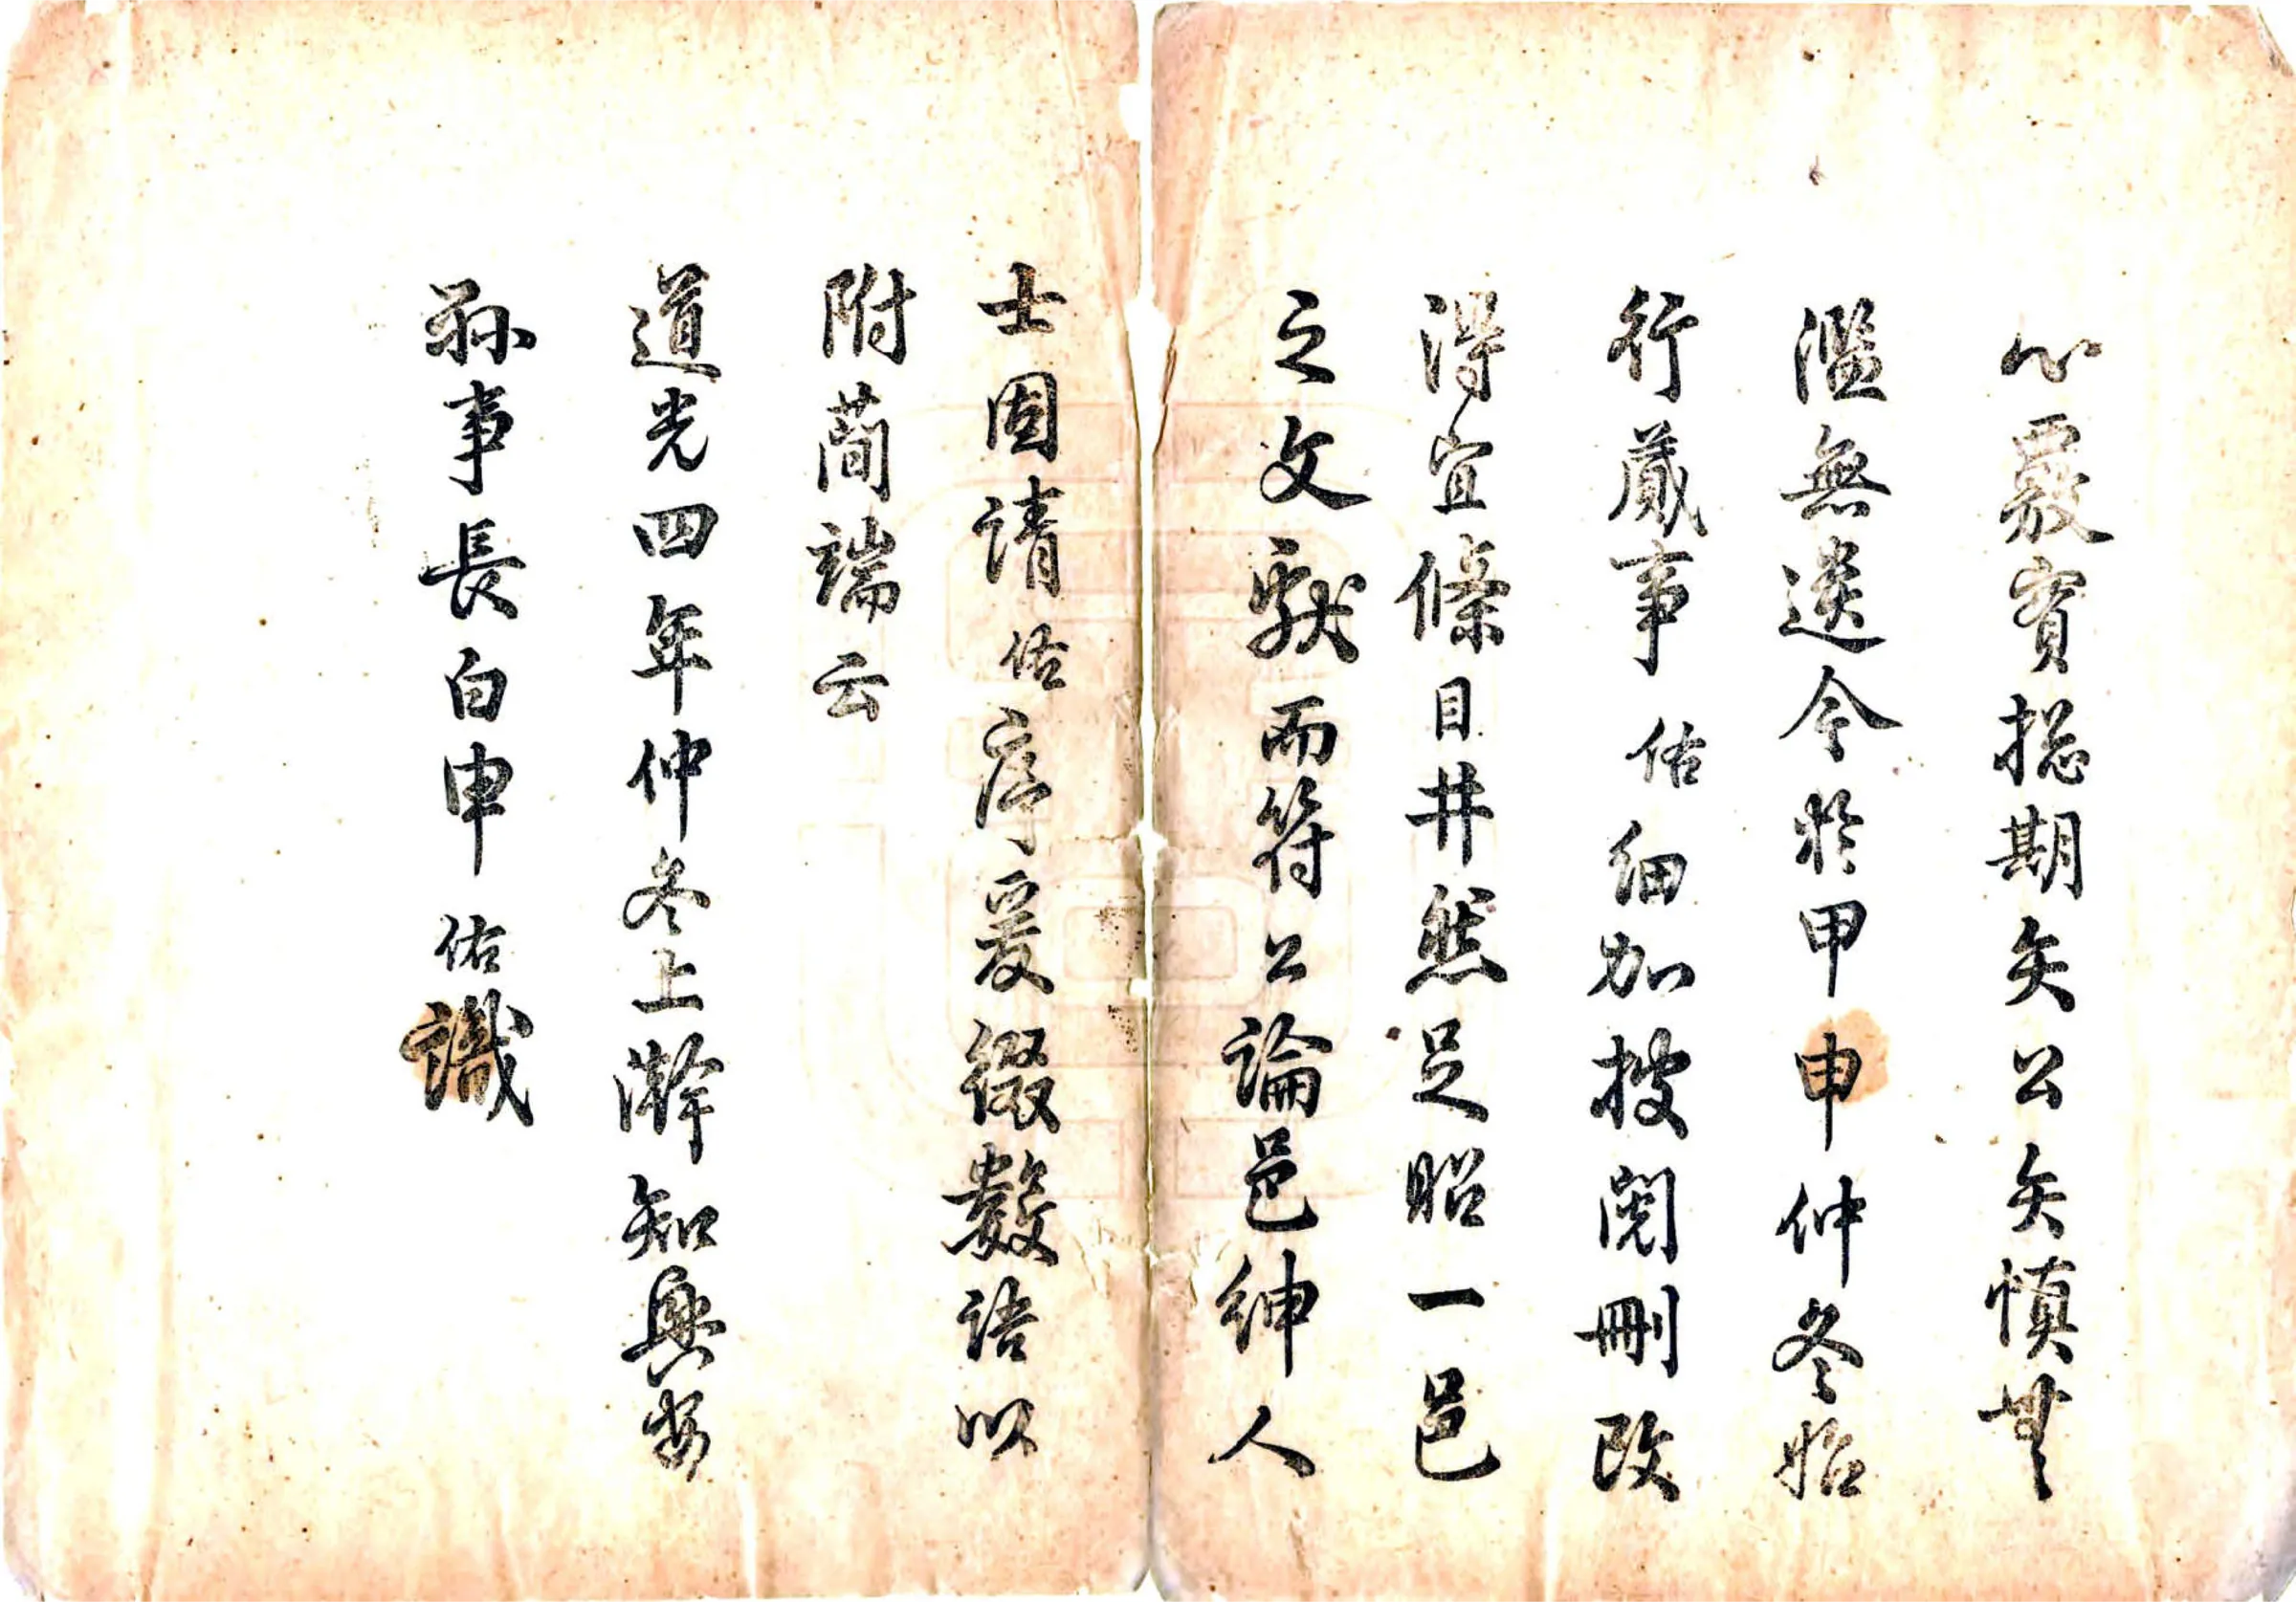 心覈實揔期矣公矣慎無
濫無遺今於甲申仲冬始
行蕆事佑細加披閱刪改
得宜條目井然足昭一邑
之文獻而符公論邑紳人
士固請佑序爰綴數語以
附簡端云
道光四年仲冬上澣知興安
縣事長白申佑識